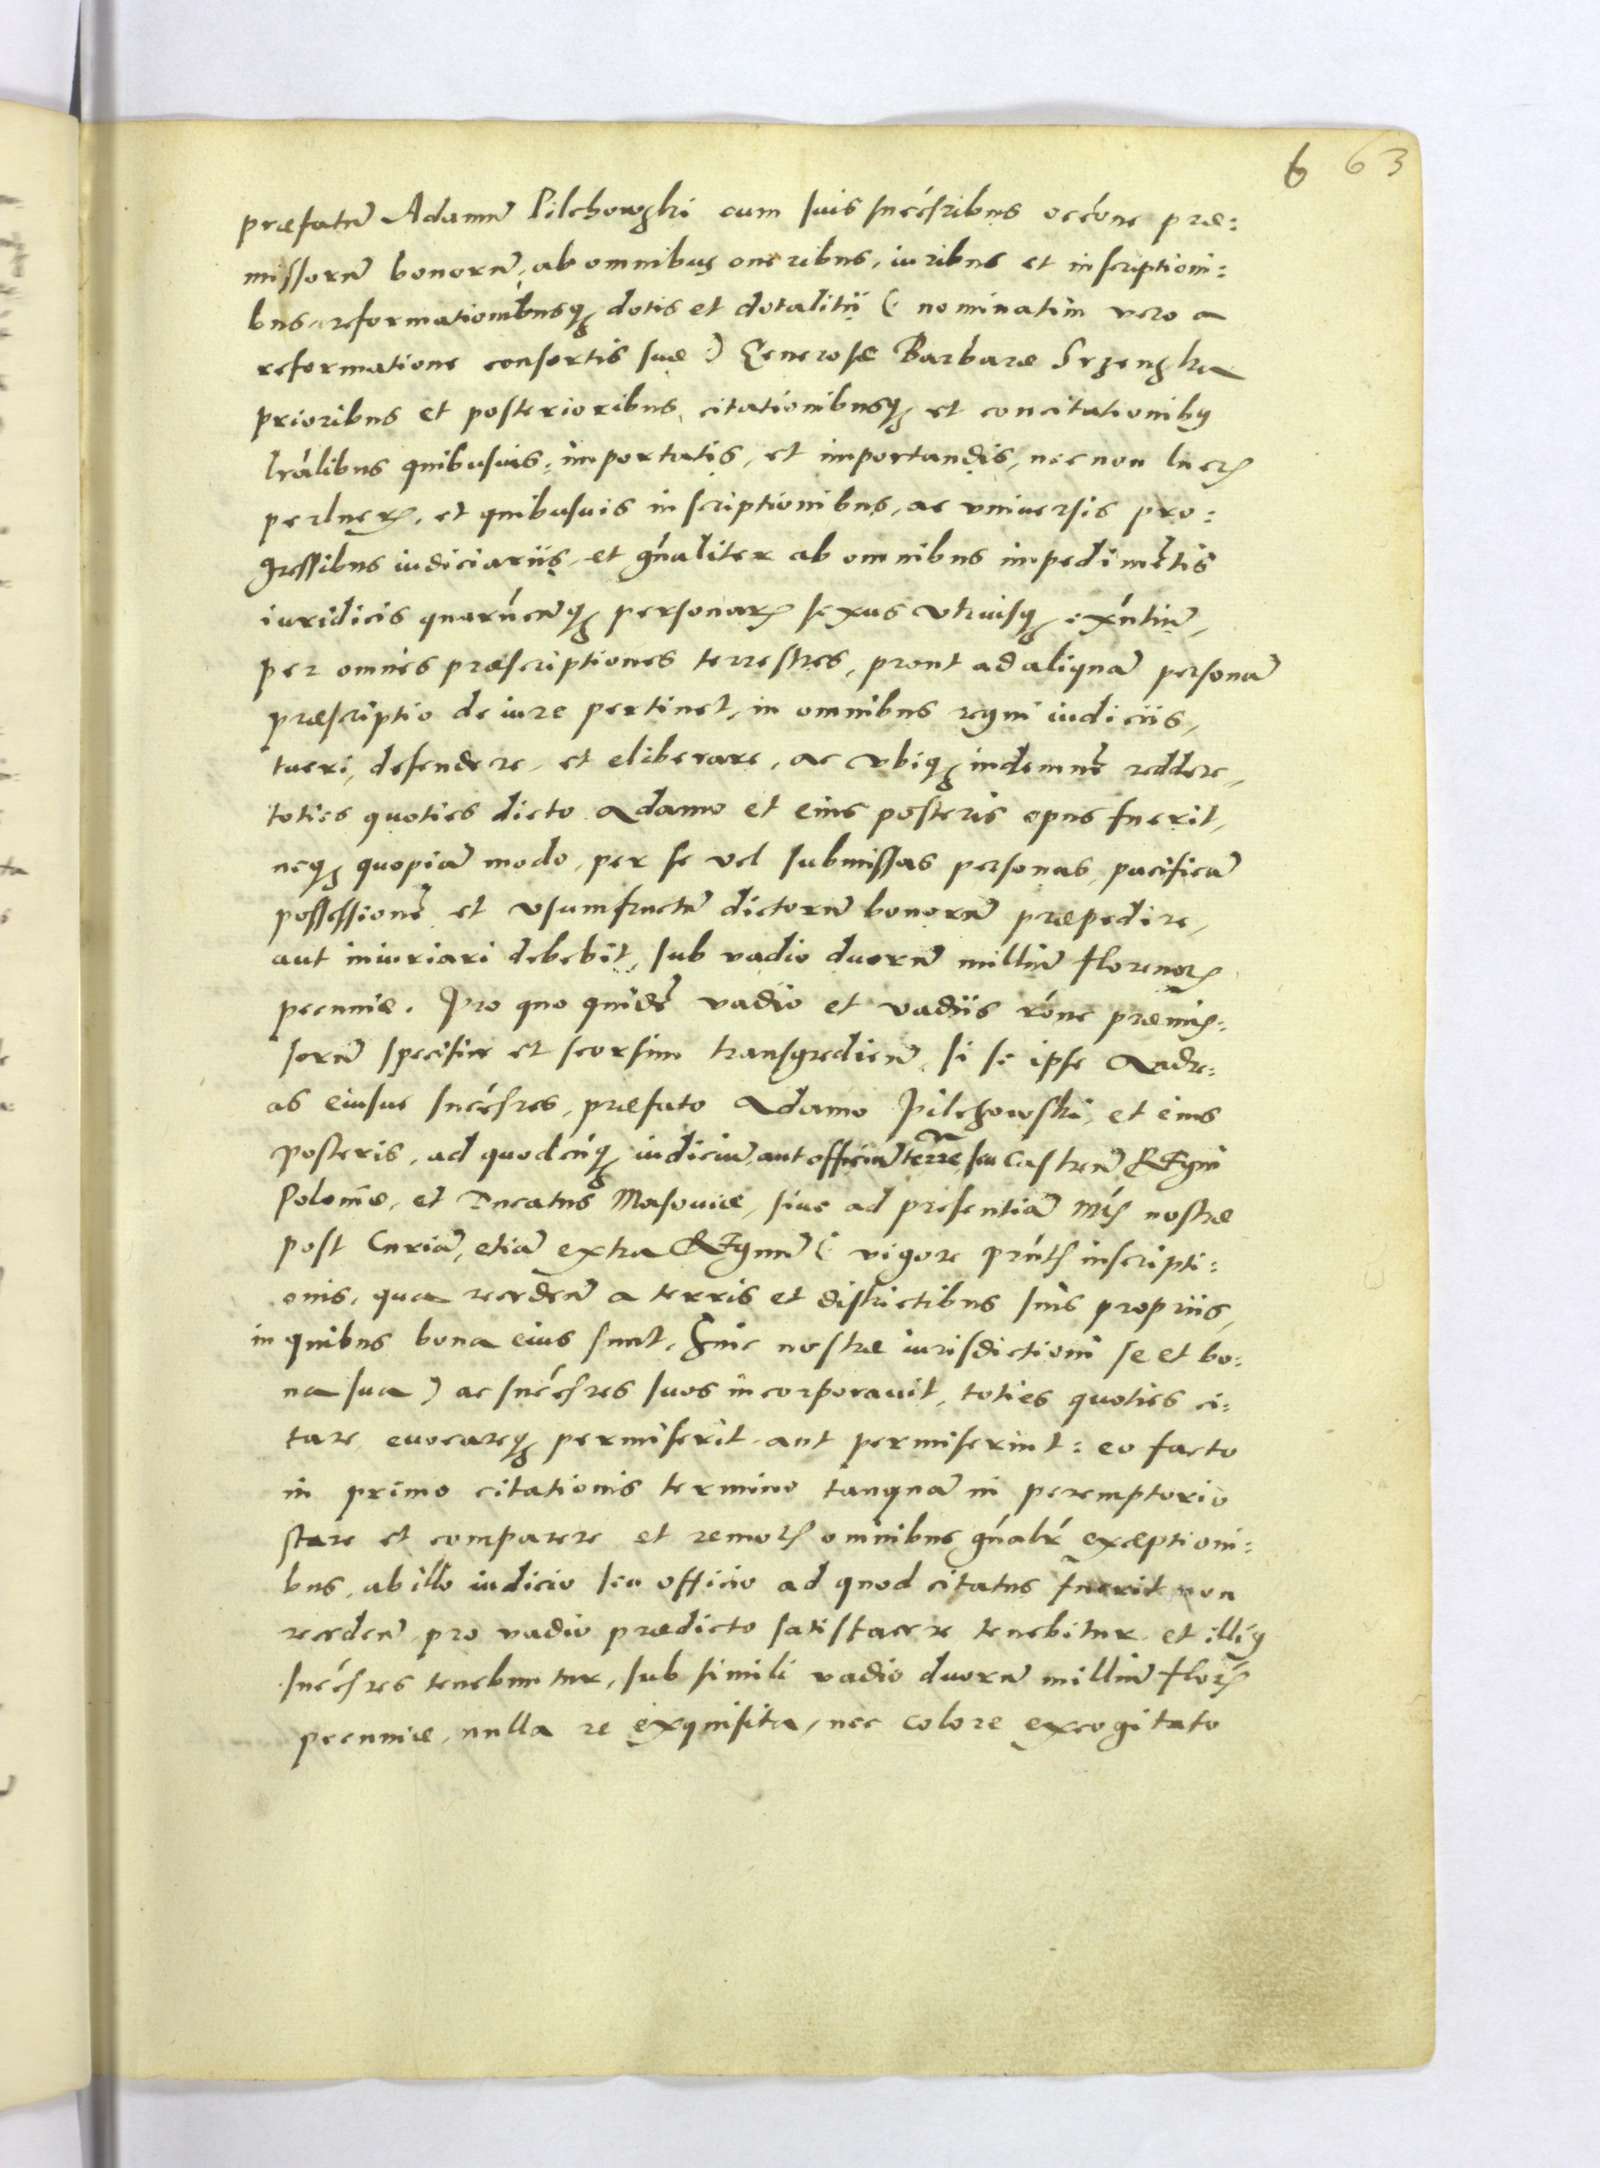 6 63
præfatũ Adamũ Pilchowski cum suis succ̃sribus occ̃one præ:
missorũ bonorũ, ab omnibus oneribus, iuribus et inscriptioni:
bus, reformationibusq̨ dotis et dotalitii (: nominatim vero a
reformatione consortis suæ :) Generosæ Barbaræ
prioribus et posterioribus, citationibusq̨ et concitationibꝰ
lrãlibus quibusuis, importatis, et importandis, necnon lucrꝭ
perlucrꝭ, et quibusuis inscriptionibus, ac vniuersis pro:
gressibus iudiciariis, et gñaliter ab omnibus impedimẽtis
iuridicis quarũcunq̨ personarꝝ sexus vtriusq̨ exñtium,
per omnes præscriptiones terrestres, prout ad aliquã personã
præscriptio de iure pertinet, in omnibus regni iudiciis,
tueri, defendere, et eliberare, ac vbiq̨ indemnẽ reddere,
toties quoties dicto Adamo et eius posteris opus fuerit,
neq̨ quopiã modo, per se vel submissas personas, pacificã
possessionẽ et vsumfructũ dictorũ bonorũ præpedire,
aut iniuriari debebit, sub vadio duorũ milliũ florenorꝝ
pecuniæ. Pro quo quidẽ vadio et vadiis rõne præmis:
sorũ specifice et seorsim transgredieñ, si se ipse Andre:
as eiusue succ̃sres, præfato Adamo Pilchowski, et eius
posteris, ad quodcũq̨ iudiciũ, aut officiũ terrẽ, seu Castreñ Regni
Poloniæ, et Ducatus Masouiæ, siue ad presentiã Mtꝭ nostræ
post Curiã, etiã extra Regnũ (: vigore pñtꝭ inscripti:
onis, qua recedeñ a terris et districtibus suis propriis,
in quibus bona eius sunt, huic nostræ iurisdictioni se et bo:
na sua :) ac succ̃sres suos incorporauit, toties quoties ci:
tare euocareq̨ permiserit aut permiserint: eo facto
in primo citationis termino tanquã in peremptorio
stare et comparere et remotꝭ omnibus gñalr̃ exceptioni:
bus, ab illo iudicio seu officio ad quod citatus fuerit non
recedeñ pro vadio prædicto satisfacere tenebitur et illiꝰ
succ̃sres tenebuntur, sub simili vadio duorũ milliũ florꝝ
pecuniæ, nulla re exquisita, nec colore excogitato